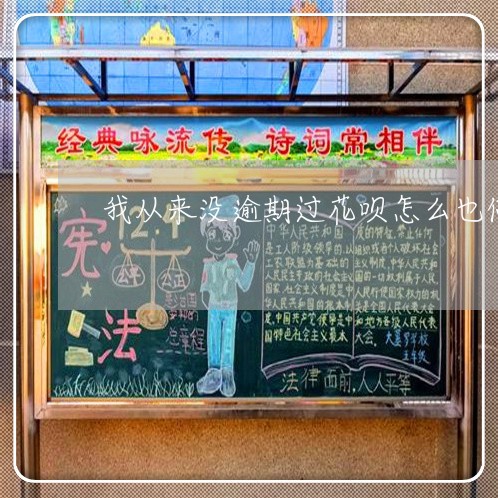 经典咏流传 诗词常相伴
我从来没逾期过花呗怎么也
宪法
12.4
公平
公正
总章程
中华人民共和国
是工人阶级领导的,以
工农联盟为基础的
人民民主专政的社会主义
国家,社会主义制度是中
华人民共和国的根本制
度,中国共产党领导是中
国特色社会主义最本
质的特征,禁止任何
组织或者个人破坏社会
主义制度,中华人民共和
国的一切权利属于人民,
人民行使国家权力的机
关是全国人民代表大会
和地方各级人民代表
大会.
学校
五年级
法律面前,人人平等